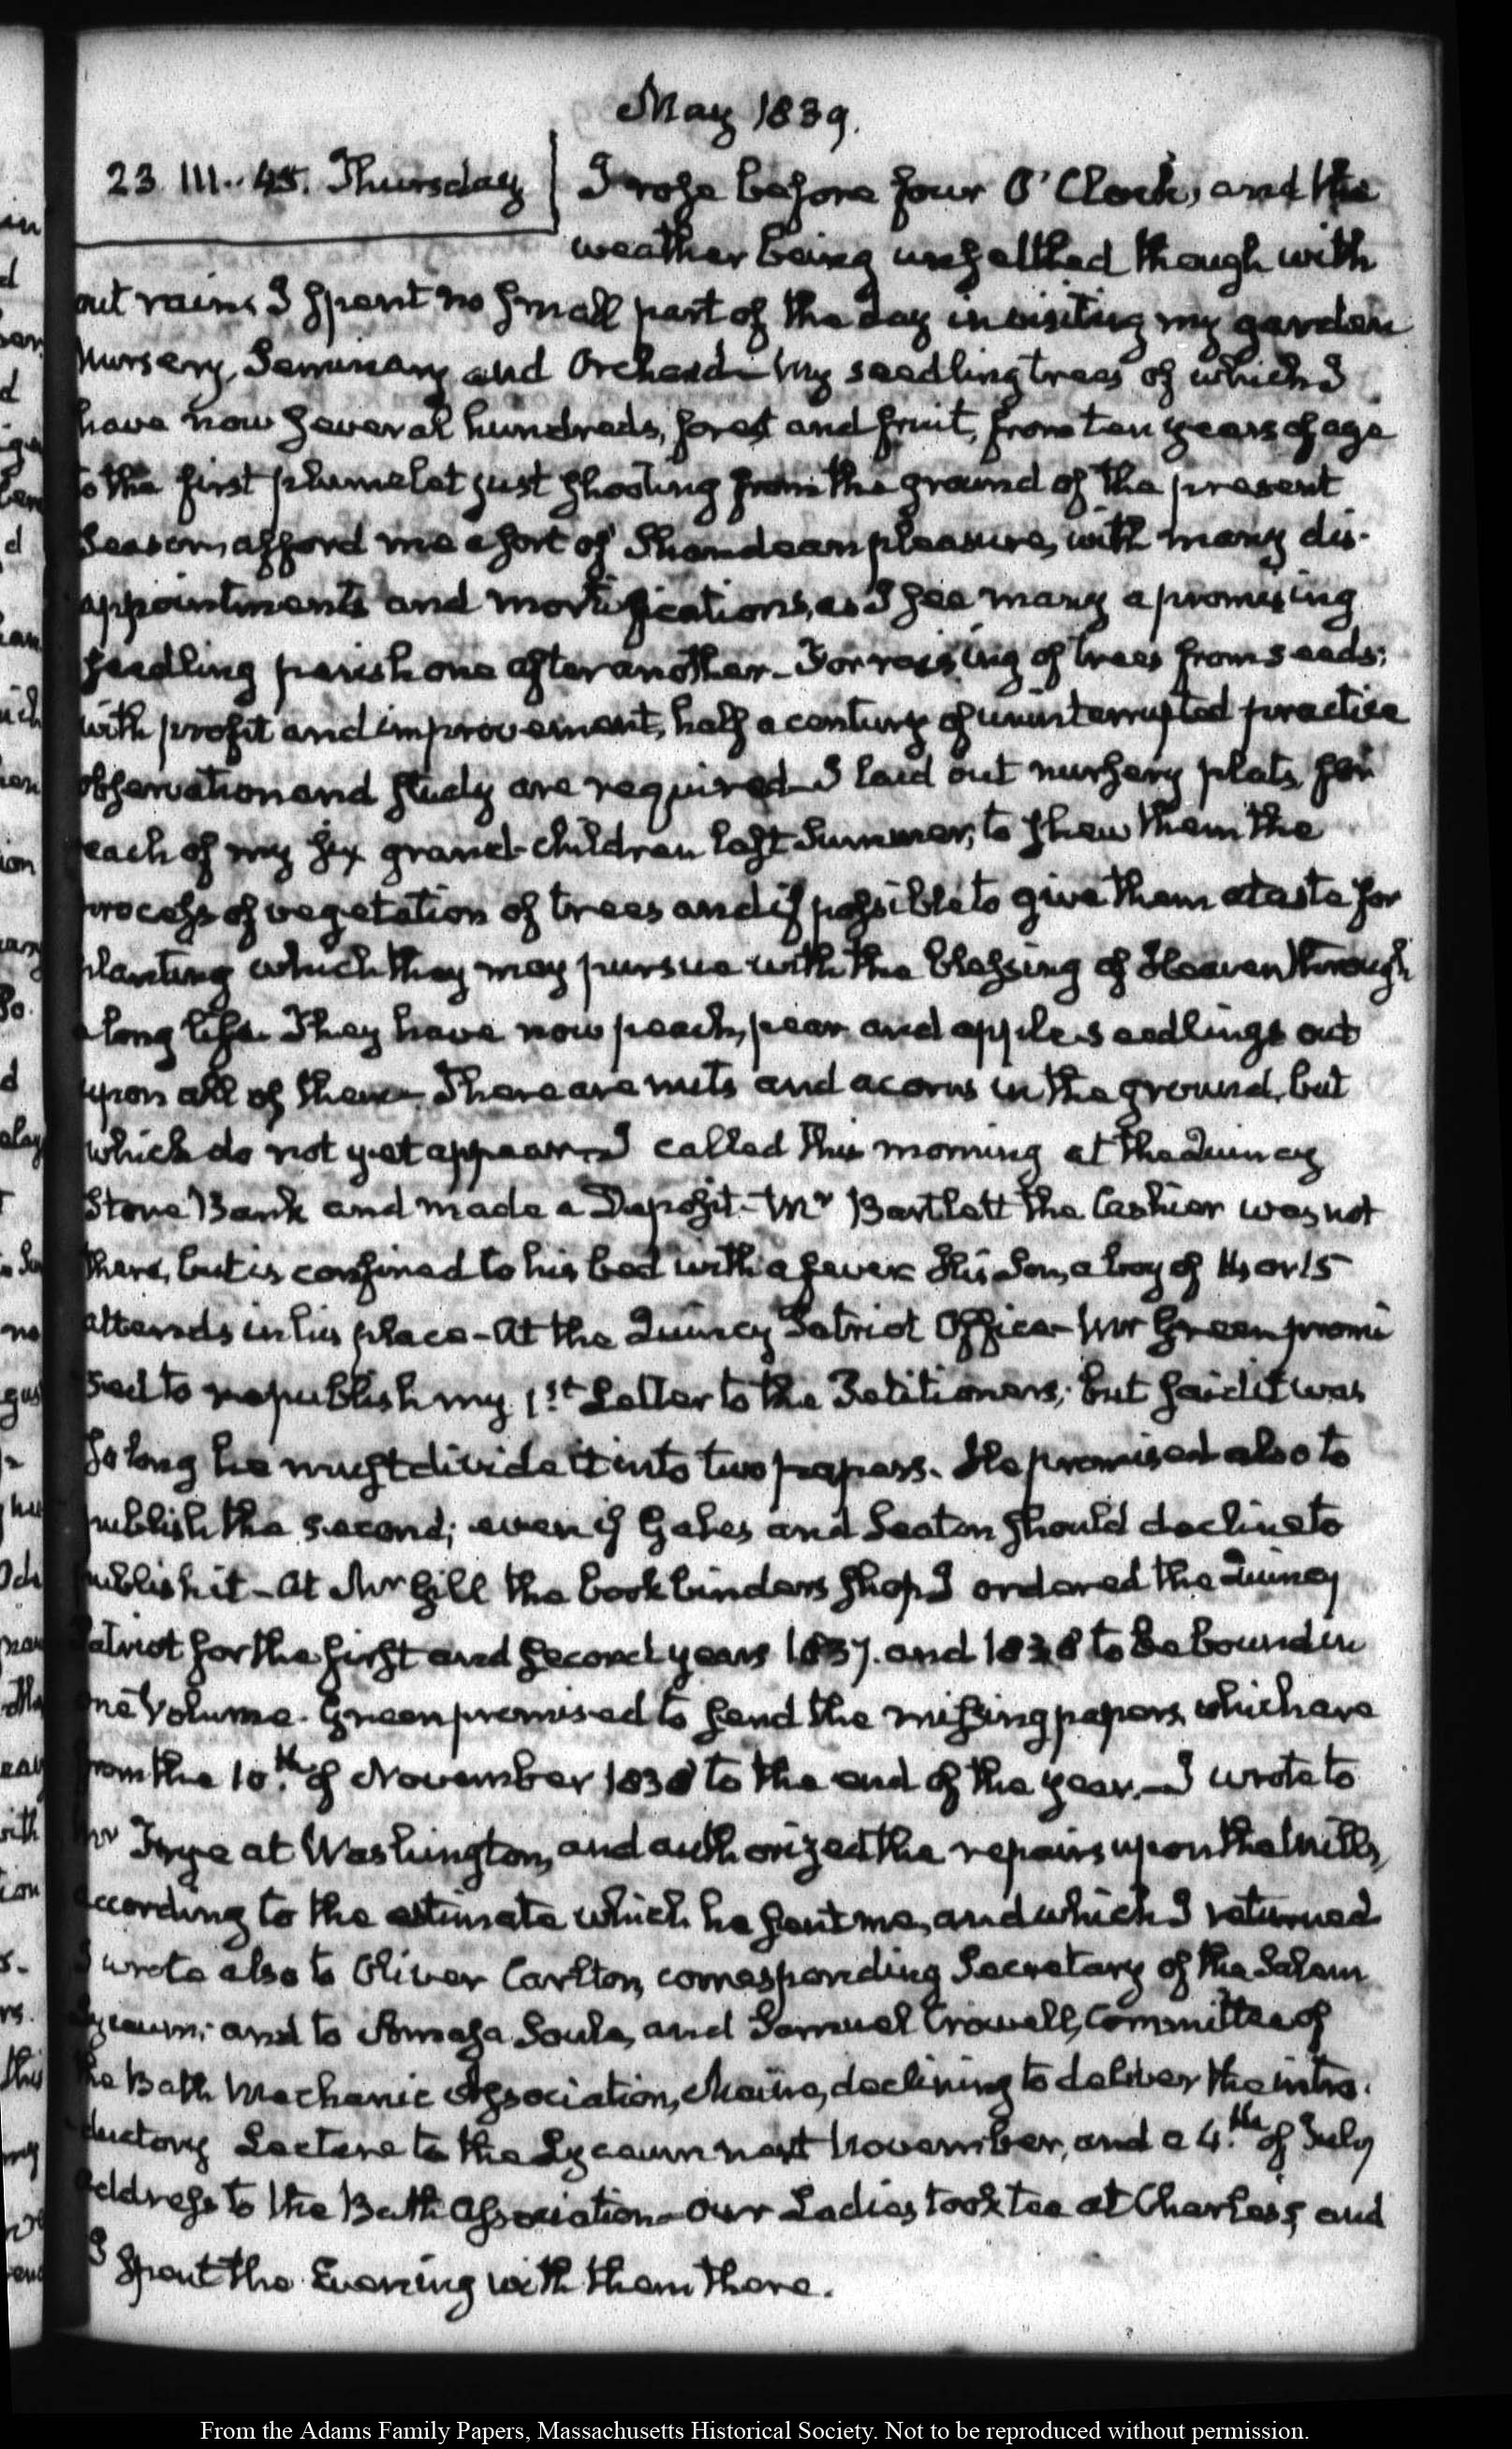 May 1839.
23 III.. 45. Thursday
I rose before four O'Clock, and the
weather being unsettled though with
out rain, I spent no small part of the day in visiting my garden
Nursery, Seminary and Orchard – My seedling trees of which I
have now several hundreds, forest and fruit, from ten years of age
to the first plumelet just shooting from the ground of the present
Season, afford me a sort of Shandean pleasure, with many dis-
appointments and mortifications, as I see many a promising
seedling perish one after another – For raising of trees from seeds;
with profit and improvement, half a century of uninterrupted practice
observation and study are required – I laid out nursery plats, for
each of my six grand-children last Summer, to shew them the
process of vegetation of trees and if possible to give them a taste for
planting which they may pursue with the blessing of Heaven through
a long life. They have now peach, pear and apple seedlings out
upon all of them – There are nuts and acorns in the ground, but
which do not yet appear – I called this morning at the Quincy
Stone Bank and made a Deposit – Mr Bartlett the Cashier was not
there, but is confined to his bed with a fever – His Son, a boy of 14 or 15
attends in his place – At the Quincy Patriot Office – Mr Green promi
sed to republish my 1st Letter to the Petitioners; but said it was
so long he must divide it into two papers. He promised also to
publish the second; even if Gales and Seaton should decline to
publish it – At Mr Gill the bookbinders shop I ordered the Quincy
Patriot for the first and second years 1837. and 1838 to be bound in
one Volume. Green promised to send the missing papers, which are
from the 10.th of November 1838 to the end of the year. – I wrote to
Mr Frye at Washington, and authorized the repairs upon the Mills,
according to the estimate which he sent me, and which I returned
I wrote also to Oliver Carlton, corresponding Secretary of the Salem
Lyceum; and to Amasa Soule, and Samuel Crowell, Committee of
the Bath Mechanic Association, Maine, declining to deliver the intro-
ductory Lecture to the Lyceum next November, and a 4.th of July
Address to the Bath Association – Our Ladies took tea at Charles's, and
I spent the Evening with them there.
From the Adams Family Papers, Massachusetts Historical Society. Not to be reproduced without permission.